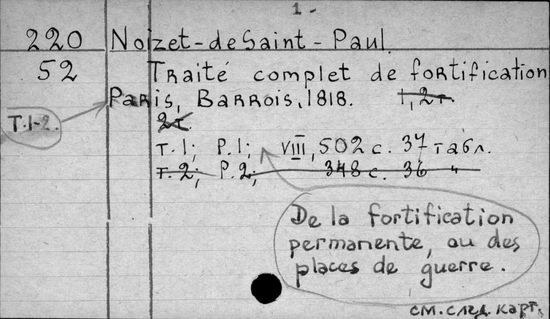 1-
220 Noizet-de Saint-Paul.
52 Traité complet de fortification
Paris, Barrois, 1818. 1, 2т.
Т.1-2.
2т.
т.1; P.1; VIII, 502 с. 37 табл.
т.2; P.2; 348 с. 36 "
De la fortification
permanente, ou des
places de guerre.
см. след. карт.